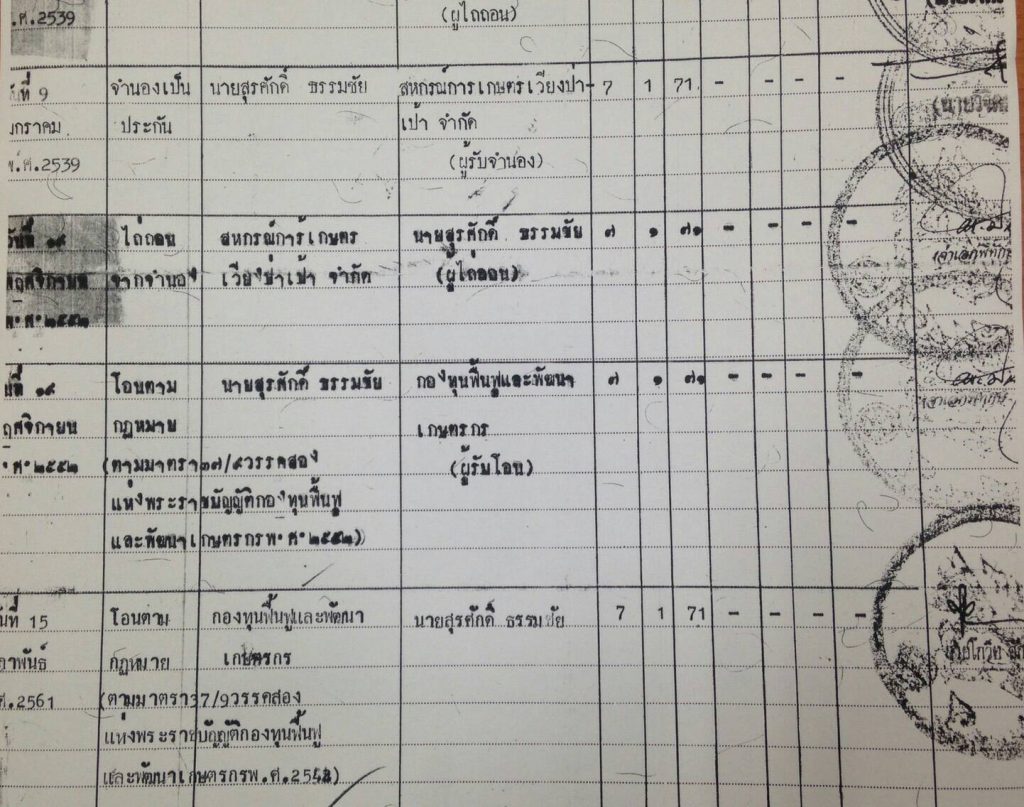 .ศ.2539
(ผู้ไถ่ถอน)
วันที่ 9 จำนองเป็น นายสุรศักดิ์ ธรรมชัย สหกรณ์การเกษตรเวียงป่า- 7 1 71 - - - -
มกราคม ประกัน เป้า จำกัด
พ.ศ.2539 (ผู้รับจำนอง)
วันที่ ๑๙ ไถ่ถอน สหกรณ์การเกษตร นายสุรศักดิ์ ธรรมชัย ๗ ๑ ๗๑ - - - -
พฤศจิกายน จากจำนอง เวียงป่าเป้า จำกัด (ผู้ไถ่ถอน)
พ.ศ.๒๕๕๒
วันที่ ๑๙ โอนตาม นายสุรศักดิ์ ธรรมชัย กองทุนฟื้นฟูและพัฒนา ๗ ๑ ๗๑ - - - -
พฤศจิกายน กฎหมาย เกษตรกร
.ศ.๒๕๕๒ (ตามมาตรา๓๗/๙วรรคสอง (ผู้รับโอน)
แห่งพระราชบัญญัติกองทุนฟื้นฟู
และพัฒนาเกษตรกรพ.ศ.๒๕๔๒)
วันที่ 15 โอนตาม กองทุนฟื้นฟูและพัฒนา นายสุรศักดิ์ ธรรมชัย 7 1 71 - - - -
กฎหมาย เกษตรกร
ศ.2561 (ตามมาตรา37/9วรรคสอง
แห่งพระราชบัญญัติกองทุนฟื้นฟู
และพัฒนาเกษตรกรพ.ศ.2542)